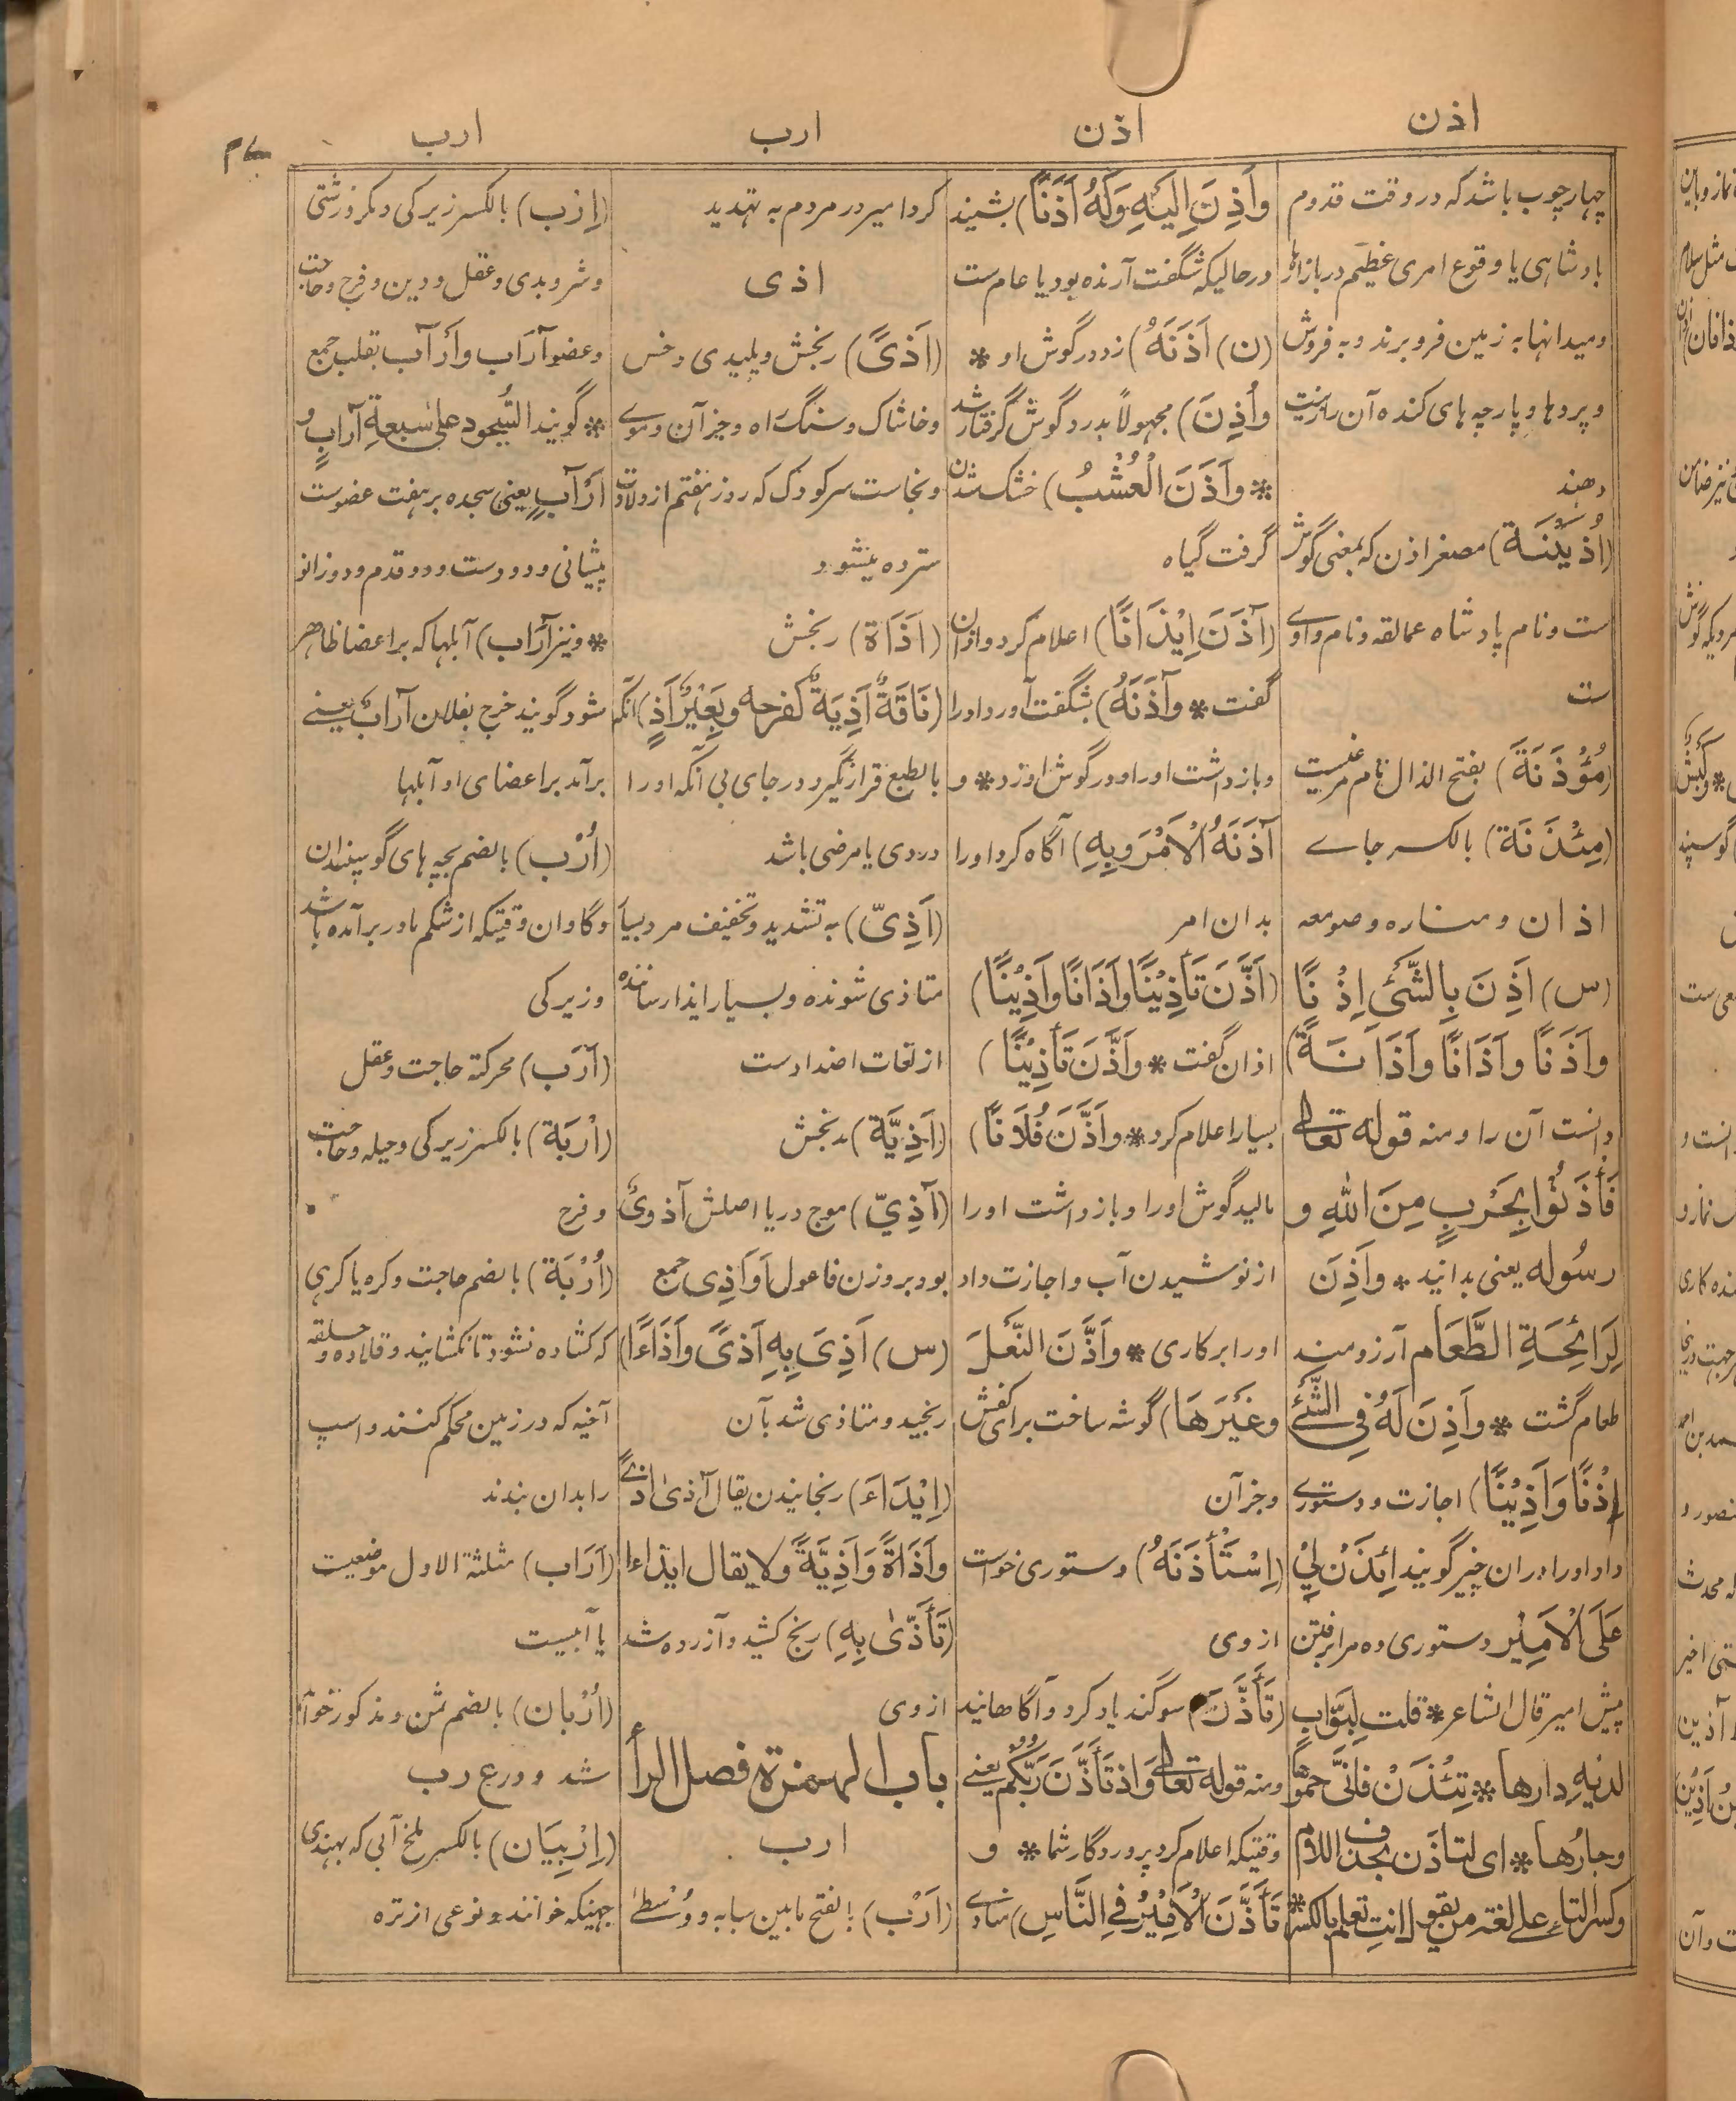 اذن
اذن
ارب
ارب
چهارچوب باشد که در وقت قدوم
بادشاهی یا وقوع امری عظیم در بازارها
ومیدانها به زمین فرو برند و به فروش
و پردها و پارچه های کنده آن را زینت
دهند
(اُذَیْنَة) مصغر اذن که بمعنی گوش
ست ونام پادشاه عمالقه ونام وادے
ست
(مُؤْذَنَة) بفتح الذال نام مرغیست
(مِئْذَنَة) بالکسر جاے
اذان و مناره و صومعه
(س) اَذِنَ بِالشَّیْءِ اِذْنًا
وَاَذَنًا وَاَذَانًا وَاَذَانَةً)
دانست آن را ومنه قوله تعالی
فَأْذَنُوْا بِحَرْبٍ مِنَ اللهِ و
رسُوله یعنی بدانید * وَاَذِنَ
لِرَائِحَةِ الطَّعَام آرزومند
طعام گشت * وَاَذِنَ لَهُ فِی الشَّیْءِ
اِذْنًا وَاَذِیْنًا) اجازت و دستورے
داد اورا دران چیز گویند ائْذَنْ لِیْ
عَلَی الْاَمِیْر دستوری ده مرا برفتن
پیش امیر قال الشاعر * قلت لِبَوَّابٍ
لدیهِ دارها * تِئْذَنْ فانّی حموُها
وجارُها * ای لتاذن بحذف اللام
وکسر التاء علی لغة من یقول انت تعلم بالکسر *
وَاَذِنَ اِلَیْهِ وَلَهُ اَذَنًا) بشنید
درحالیکه شگفت آرنده بود یا عام ست
(ن) اَذَنَهُ) زد در گوش او *
وَاُذِنَ) مجهولاً بدرد گوش گرفتار شد
* وَاَذَنَ الْعُشْبُ) خشک شدن
گرفت گیاه
(آذَنَ اِیْذَانًا) اعلام کرد و اذان
گفت * وَآذَنَهُ) بشگفت آورد اورا
و بازداشت اورا و در گوش او زد * و
آذَنَهُ الْاَمْرَ وَبِهِ) آگاه کرد اورا
بدان امر
(اَذَّنَ تَأْذِیْنًا وَاَذَانًا وَاَذِیْنًا)
اذان گفت * وَاَذَّنَ تَأْذِیْنًا)
بسیار اعلام کرد * وَاَذَّنَ فُلَانًا)
مالید گوش اورا و بازداشت اورا
از نوشیدن آب و اجازت داد
اورا بر کاری * وَاَذَّنَ النَّعْلَ
وَغَیْرَهَا) گوشه ساخت برای کفش
وجز آن
(اِسْتَأْذَنَهُ) دستوری خواست
از وی
(تَأَذَّنَ) سوگند یاد کرد و آگاهانید
ومنه قوله تعالی وَاِذْ تَأَذَّنَ رَبُّکُمْ یعنی
وقتیکه اعلام کرد پروردگار شما * و
تَأَذَّنَ الْاَمِیْرُ فِی النَّاسِ) منادے
کرد امیر در مردم به تهدید
اذی
(اَذًی) رنجش و پلیدی و خس
و خاشاک و سنگ راه وجز آن و موے
و نجاست سر کودک که روز هفتم از ولادت
سترده میشود
(اَذَاة) رنجش
(نَاقَةٌ اَذِیَةٌ کفرحه وبَعِیْرٌ اَذٍ) آنکه
بالطبع قرار نگیرد در جای بی آنکه اورا
دردی یا مرضی باشد
(اَذِیّ) به تشدید و تخفیف مرد بسیار
متاذی شونده و بسیار ایذا رساننده
از لغات اضدادست
(اَذِیَّة) رنجش
(آذِیّ) موج دریا اصلش آذوی
بود بر وزن فاعول اَوَاذِی جمع
(س) اَذِیَ بِهِ اَذًی وَاَذَاءًا)
رنجید و متاذی شد بآن
(اِیْذَاءَ) رنجانیدن یقال آذی اذیً
وَاَذَاةً وَاَذِیَّةً ولا یقال ایذاءا
(تَأَذّٰی بِهِ) رنج کشید و آزرده شد
از وی
باب الهمزة فصل الرأ
ارب
(اَرْب) بالفتح مابین سبابه و وُسْطٰے
(اِرْب) بالکسر زیرکی و مکر و زشتی
وشر و بدی وعقل و دین و فرج وحاجت
وعضو آرَاب وَاَرْآب بقلب جمع
* گویند السُّجُود علی سَبعَةِ آرَابٍ و
اَرْآبٍ یعنی سجده بر هفت عضوست
پیشانی و دو دست و دو قدم و دو زانو
* و نیز آرَاب) آبلها که بر اعضا ظاهر
شود گویند خرج بفلان آرَابٌ یعنے
برآمد بر اعضای او آبلها
(اُرْب) بالضم بچه های گوسپندان
و گاوان وقتیکه از شکم مادر برآمده باشد
و زیرکی
(اَرَب) محرکة حاجت و عقل
(اِرْبَة) بالکسر زیرکی و حیله و حاجت
و فرج
(اُرْبَة) بالضم حاجت و گره یا گرهی
که کشاده نشود تا نکشایند و قلاده و حلقه
آخیه که در زمین محکم کنند و اسپ
را بدان بندند
(اَرَاب) مثلثة الاول موضعیست
یا آبیست
(اُرْبان) بالضم ثمن و مذکور خواهد
شد در ع رب
(اِرْبِیَان) بالکسر ملخ آبی که بهندی
جهینگه خوانند و نوعی از تره